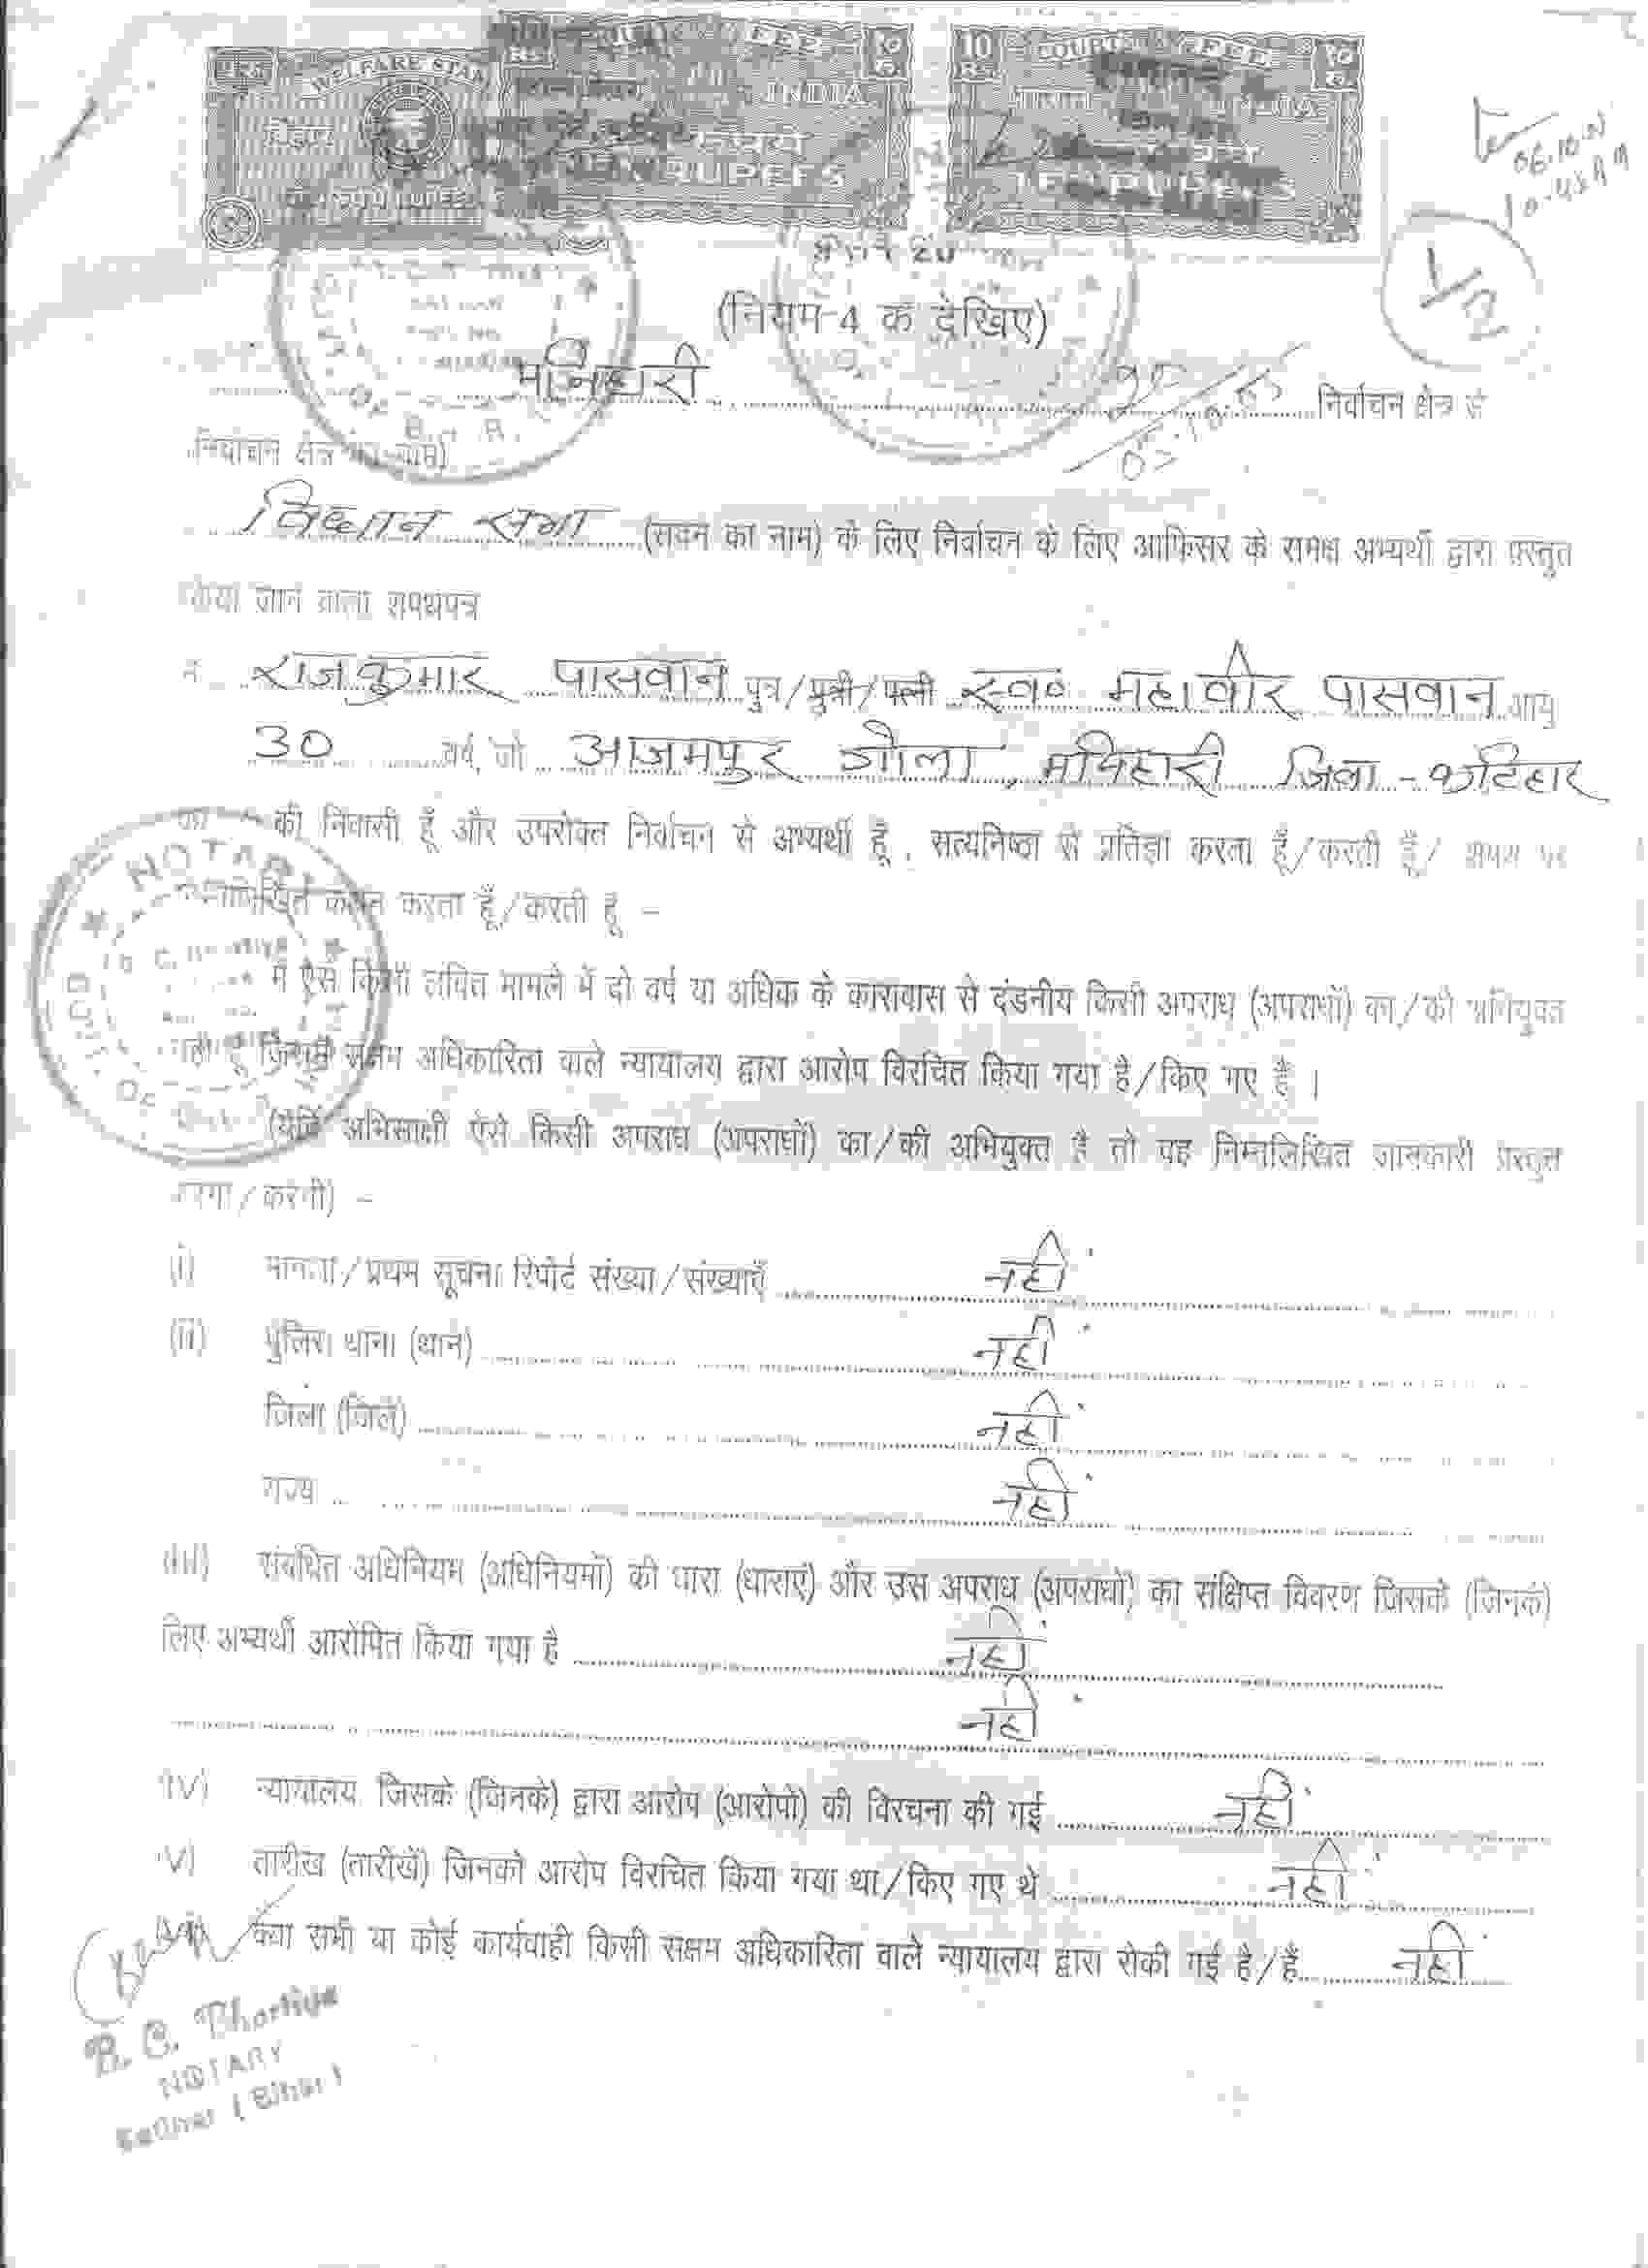 WELFARE STAM
10 Rs. FEE १० रु.
10 Rs. COURT FEE १० रु.
बिहार
INDIA
INDIA
TEN RUPEES
TEN RUPEES
06.10.
10.45 AM
(नियम-4 क देखिए)
मनिहारी निर्वाचन क्षेत्र से
निर्वाचन क्षेत्र का नाम)
विधान सभा (सदन का नाम) के लिए निर्वाचन के लिए आफिसर के समक्ष अभ्यर्थी द्वारा प्रस्तुत
किया जाने वाला शपथपत्र
मैं राजकुमार पासवान पुत्र/पुत्री/पत्नी स्व० महावीर पासवान आयु
30 वर्ष, जो आजमपुर गोला, मनिहारी जिला - कटिहार
का / की निवासी हूँ और उपरोक्त निर्वाचन से अभ्यर्थी हूँ, सत्यनिष्ठा से प्रतिज्ञा करता हूँ/करती हूँ/ शपथ पर
करता हूँ/करती हूँ –
NOTARY
मैं ऐसे किसी लंबित मामले में दो वर्ष या अधिक के कारावास से दंडनीय किसी अपराध (अपराधों) का/की अभियुक्त
नहीं हूँ जिसमें सक्षम अधिकारिता वाले न्यायालय द्वारा आरोप विरचित किया गया है/किए गए हैं ।
(यदि अभिसाक्षी ऐसे किसी अपराध (अपराधों) का/की अभियुक्त है तो वह निम्नलिखित जानकारी प्रस्तुत
करेगा/करेगी) –
(i) मामला/प्रथम सूचना रिपोर्ट संख्या/संख्याएँ नहीं
(ii) पुलिस थाना (थाने) नहीं
जिला (जिले) नहीं
राज्य नहीं
(iii) संबंधित अधिनियम (अधिनियमों) की धारा (धाराएं) और उस अपराध (अपराधों) का संक्षिप्त विवरण जिसके (जिनके)
लिए अभ्यर्थी आरोपित किया गया है नहीं
नहीं
(iv) न्यायालय जिसके (जिनके) द्वारा आरोप (आरोपों) की विरचना की गई नहीं
(v) तारीख (तारीखें) जिनको आरोप विरचित किया गया था/किए गए थे नहीं
(vi) क्या सभी या कोई कार्यवाही किसी सक्षम अधिकारिता वाले न्यायालय द्वारा रोकी गई है/हैं नहीं
NOTARY
Katihar (Bihar)